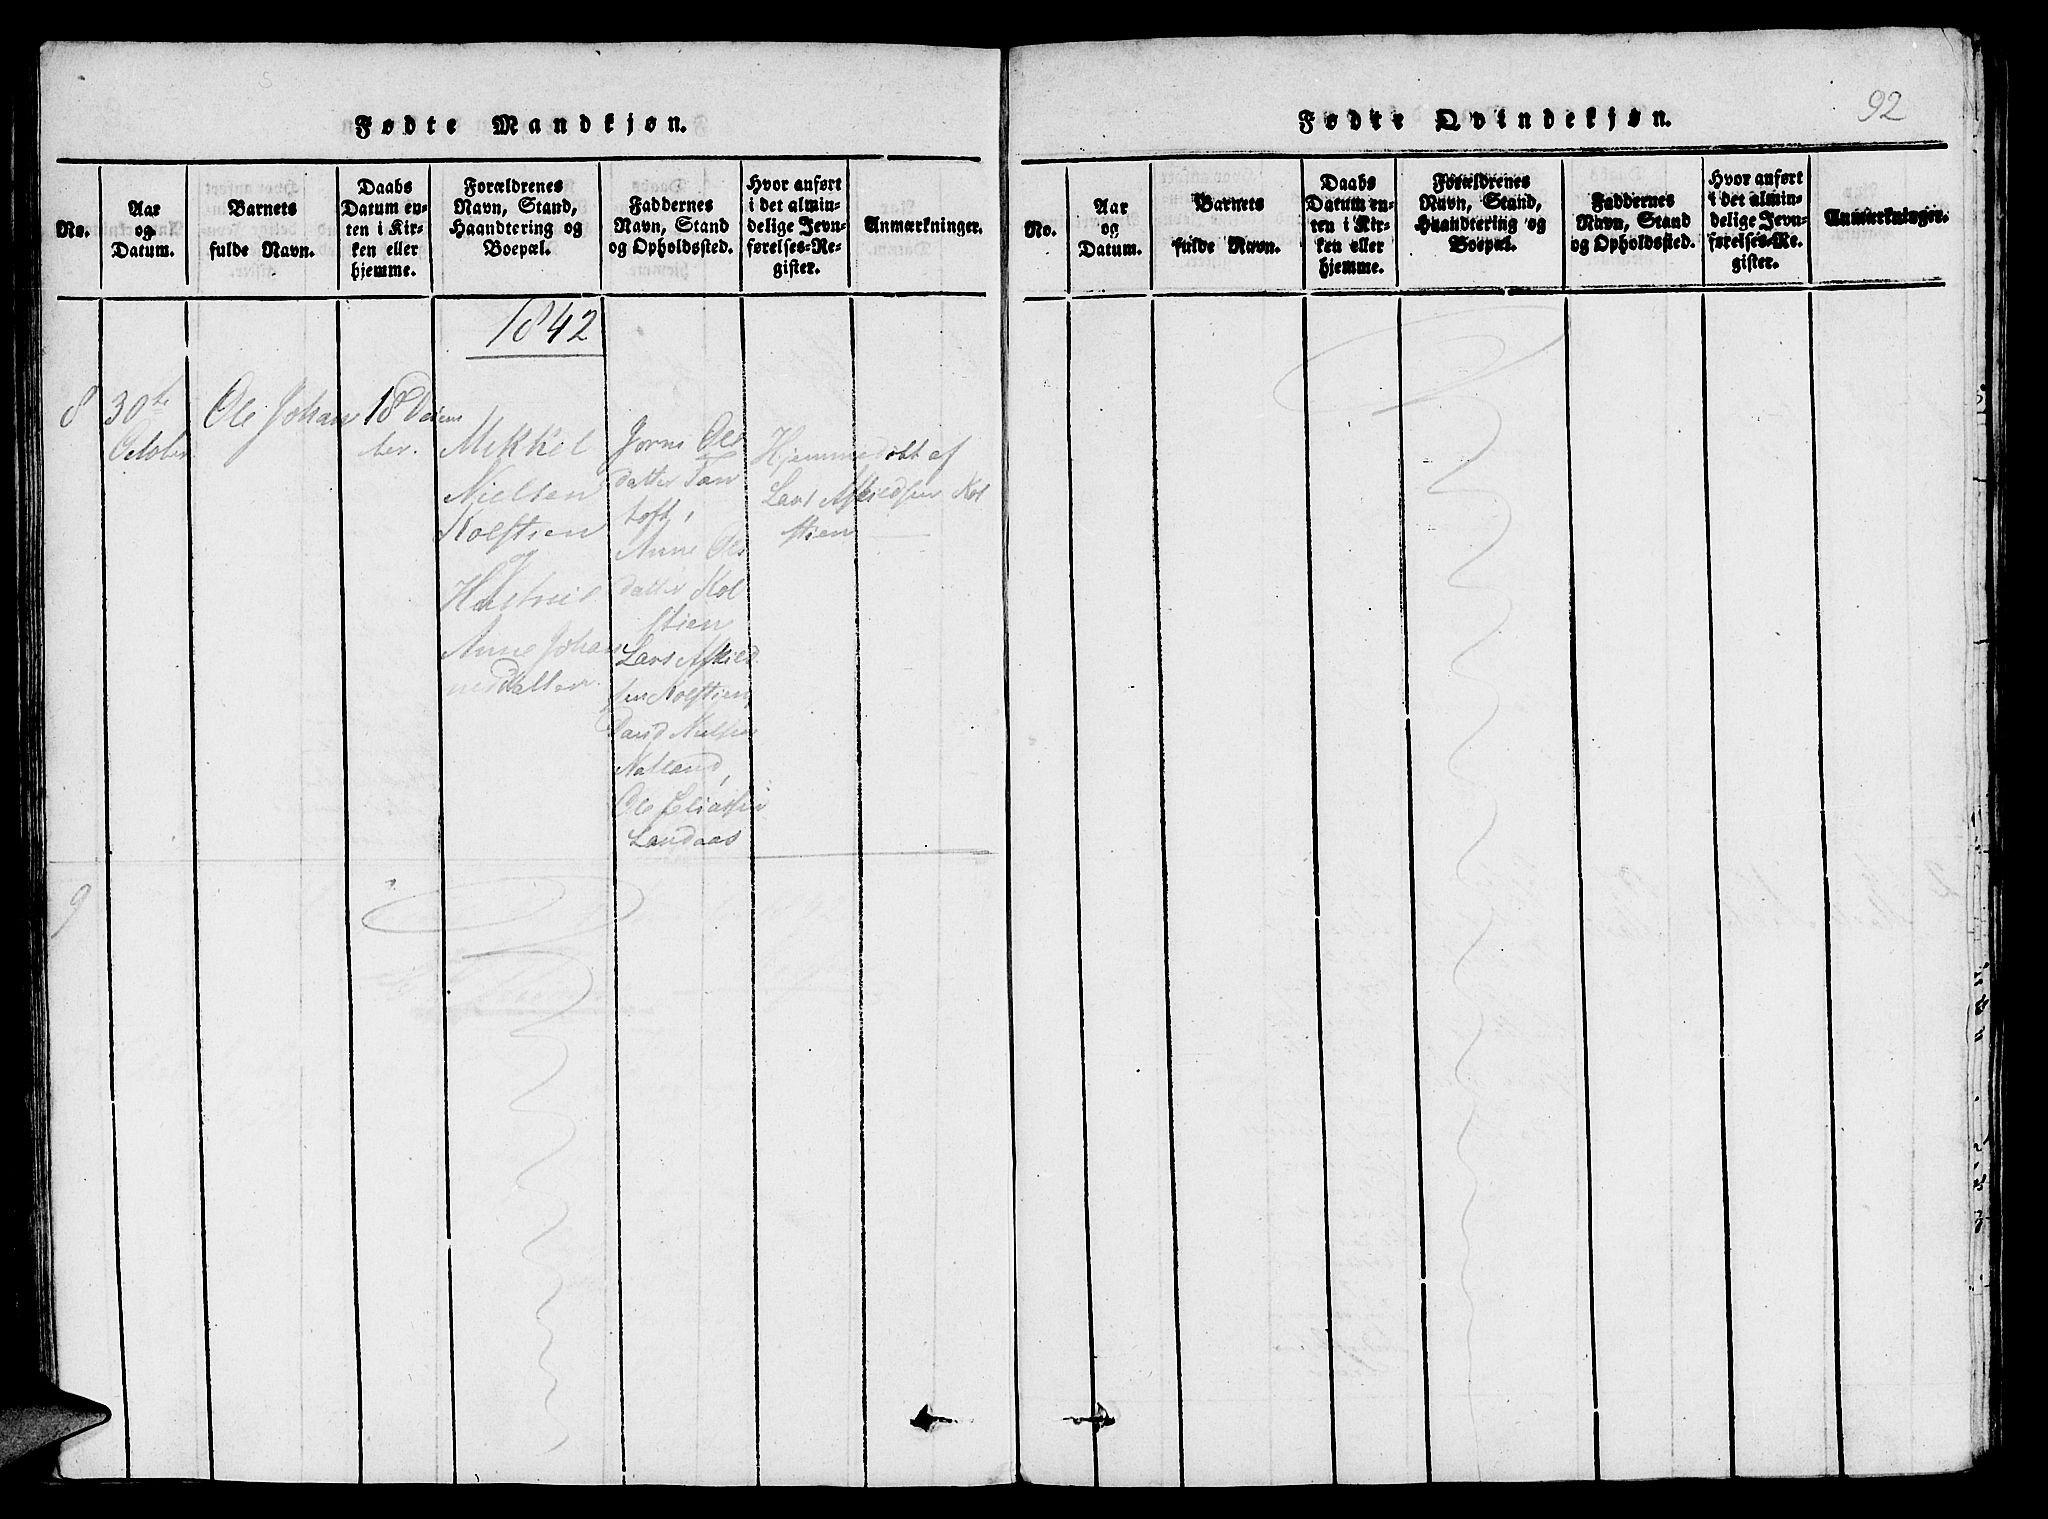 Fødte Mandkjøn.
No.
Aar
og
Datum.
Barnets
fulde Navn.
Daabs
Datum en-
ten i Kir-
ken eller
hjemme.
Forældrenes
Navn, Stand,
Haandtering og
Boepæl.
Faddernes
Navn, Stand
og Opholdssted.
Hvor anført
i det almin-
delige Jevn-
førelses-Re-
gister.
Anmærkninger.
1842
8
30te
October
Ole Johan
18 Decem
ber.
Mikkel
Nielsen
Kolstien
og
Hustrue
Anne Johan
nesdatter
Ole
datter Tan
toft,
Anne Ols
datter Kol
stien
Lars Askild
sen Kolstien,
David Nielsen
Natland,
Ole Eliassen
Landaas
Hjemmedøbt af
Lars Askildsen Kol
stien
9
Fødte Qvindekjøn.
92
No.
Aar
og
Datum.
Barnets
fulde Navn.
Daabs
Datum en-
ten i Kir-
ken eller
hjemme.
Forældrenes
Navn, Stand,
Haandtering og
Boepæl.
Faddernes
Navn, Stand
og Opholdssted.
Hvor anført
i det almin-
delige Jevn-
førelses-Re-
gister.
Anmærkninger.